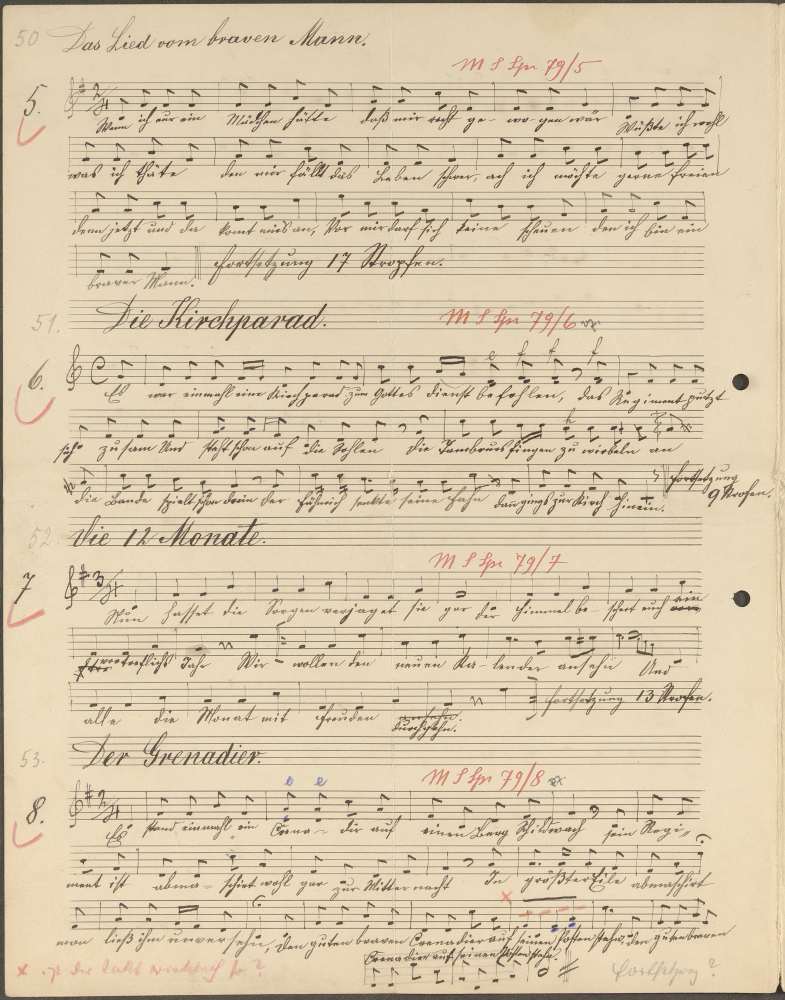 50 Das Lied vom braven Mann.
M S Spr 79/5
5.
Wenn ich nur ein Mädchen hätte daß mir recht ge- wo- gen wär Wüßte ich wohl
was ich thäte den mir fällt das Leben schwer, ach ich möchte gerne freien
denn jetzt und da komt mirs an, Vor mir darf sich keine scheuen den ich bin ein
braver Mann. Fortsetzung 17 Stropfen.
51. Die Kirchparad.
M S Spr 79/6
6.
Es war einmahl eine Kirchparad zum Gottes dienst befohlen, das Regiment putzt
sich zusam Und steht schon auf die Sohlen die Tambours fingen zu wirbeln an
die Bande spielt schon drein der Fähnrich senkte seine Fahn dan gings zur Kirch hinein.
Fortsetzung
9 Strofen.
52. Die 12 Monate.
M S Spr 79/7
7
Nun lasset die Sorgen verjaget sie gar der Himmel be- schert euch ein
vortreflichs Jahr Wir wollen den neuen Ka- lender ansehn Und
alle die Monat mit Freuden durchgehn. Fortsetzung 13 Strofen.
53. Der Grenadier.
M S Spr 79/8
8.
e e
Es stand einmahl ein Grena- dir auf einen Berg Schildwach sein Regi-
ment ist abma- schirt wohl gar zur Mitter nacht In größter Eile abmaschirt
man ließ ihn unversehn, Den guten braven Grenadier auf seinen Posten stehn, den guten braven
Grenadier auf seinen Posten stehn.
Fortsetzung?